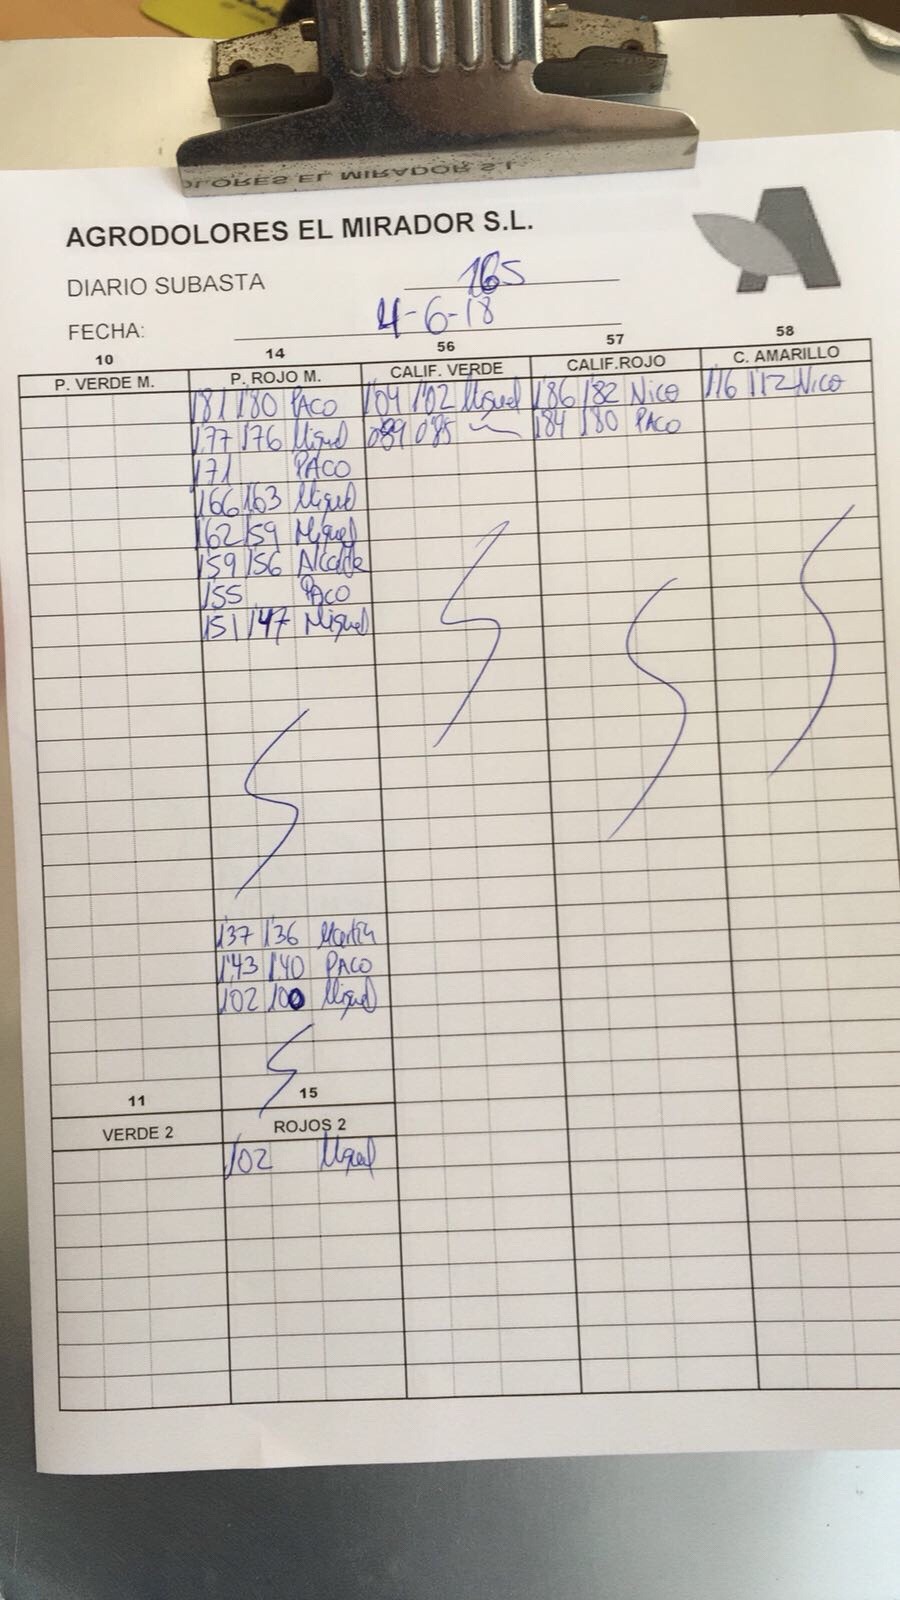 OLORES EL MIRADOR S.L.
AGRODOLORES EL MIRADOR S.L.
DIARIO SUBASTA 165
FECHA: 4-6-18
10 14 56 57 58
P. VERDE M. P. ROJO M. CALIF. VERDE CALIF.ROJO C. AMARILLO
1'81 1'80 PACO 1'04 1'02 Miguel 1'86 1'82 Nico 1'16 1'12 Nico
1'77 1'76 Miguel 089 085 1'84 1'80 PACO
1'71 PACO
1'66 1'63 Miguel
1'62 1'59 Miguel
1'59 1'56 Alcalde
1'55 PACO
1'51 1'47 Miguel
1'37 1'36 Martin
1'43 1'40 PACO
1'02 1'00 Miguel
11 15
VERDE 2 ROJOS 2
1'02 Miguel